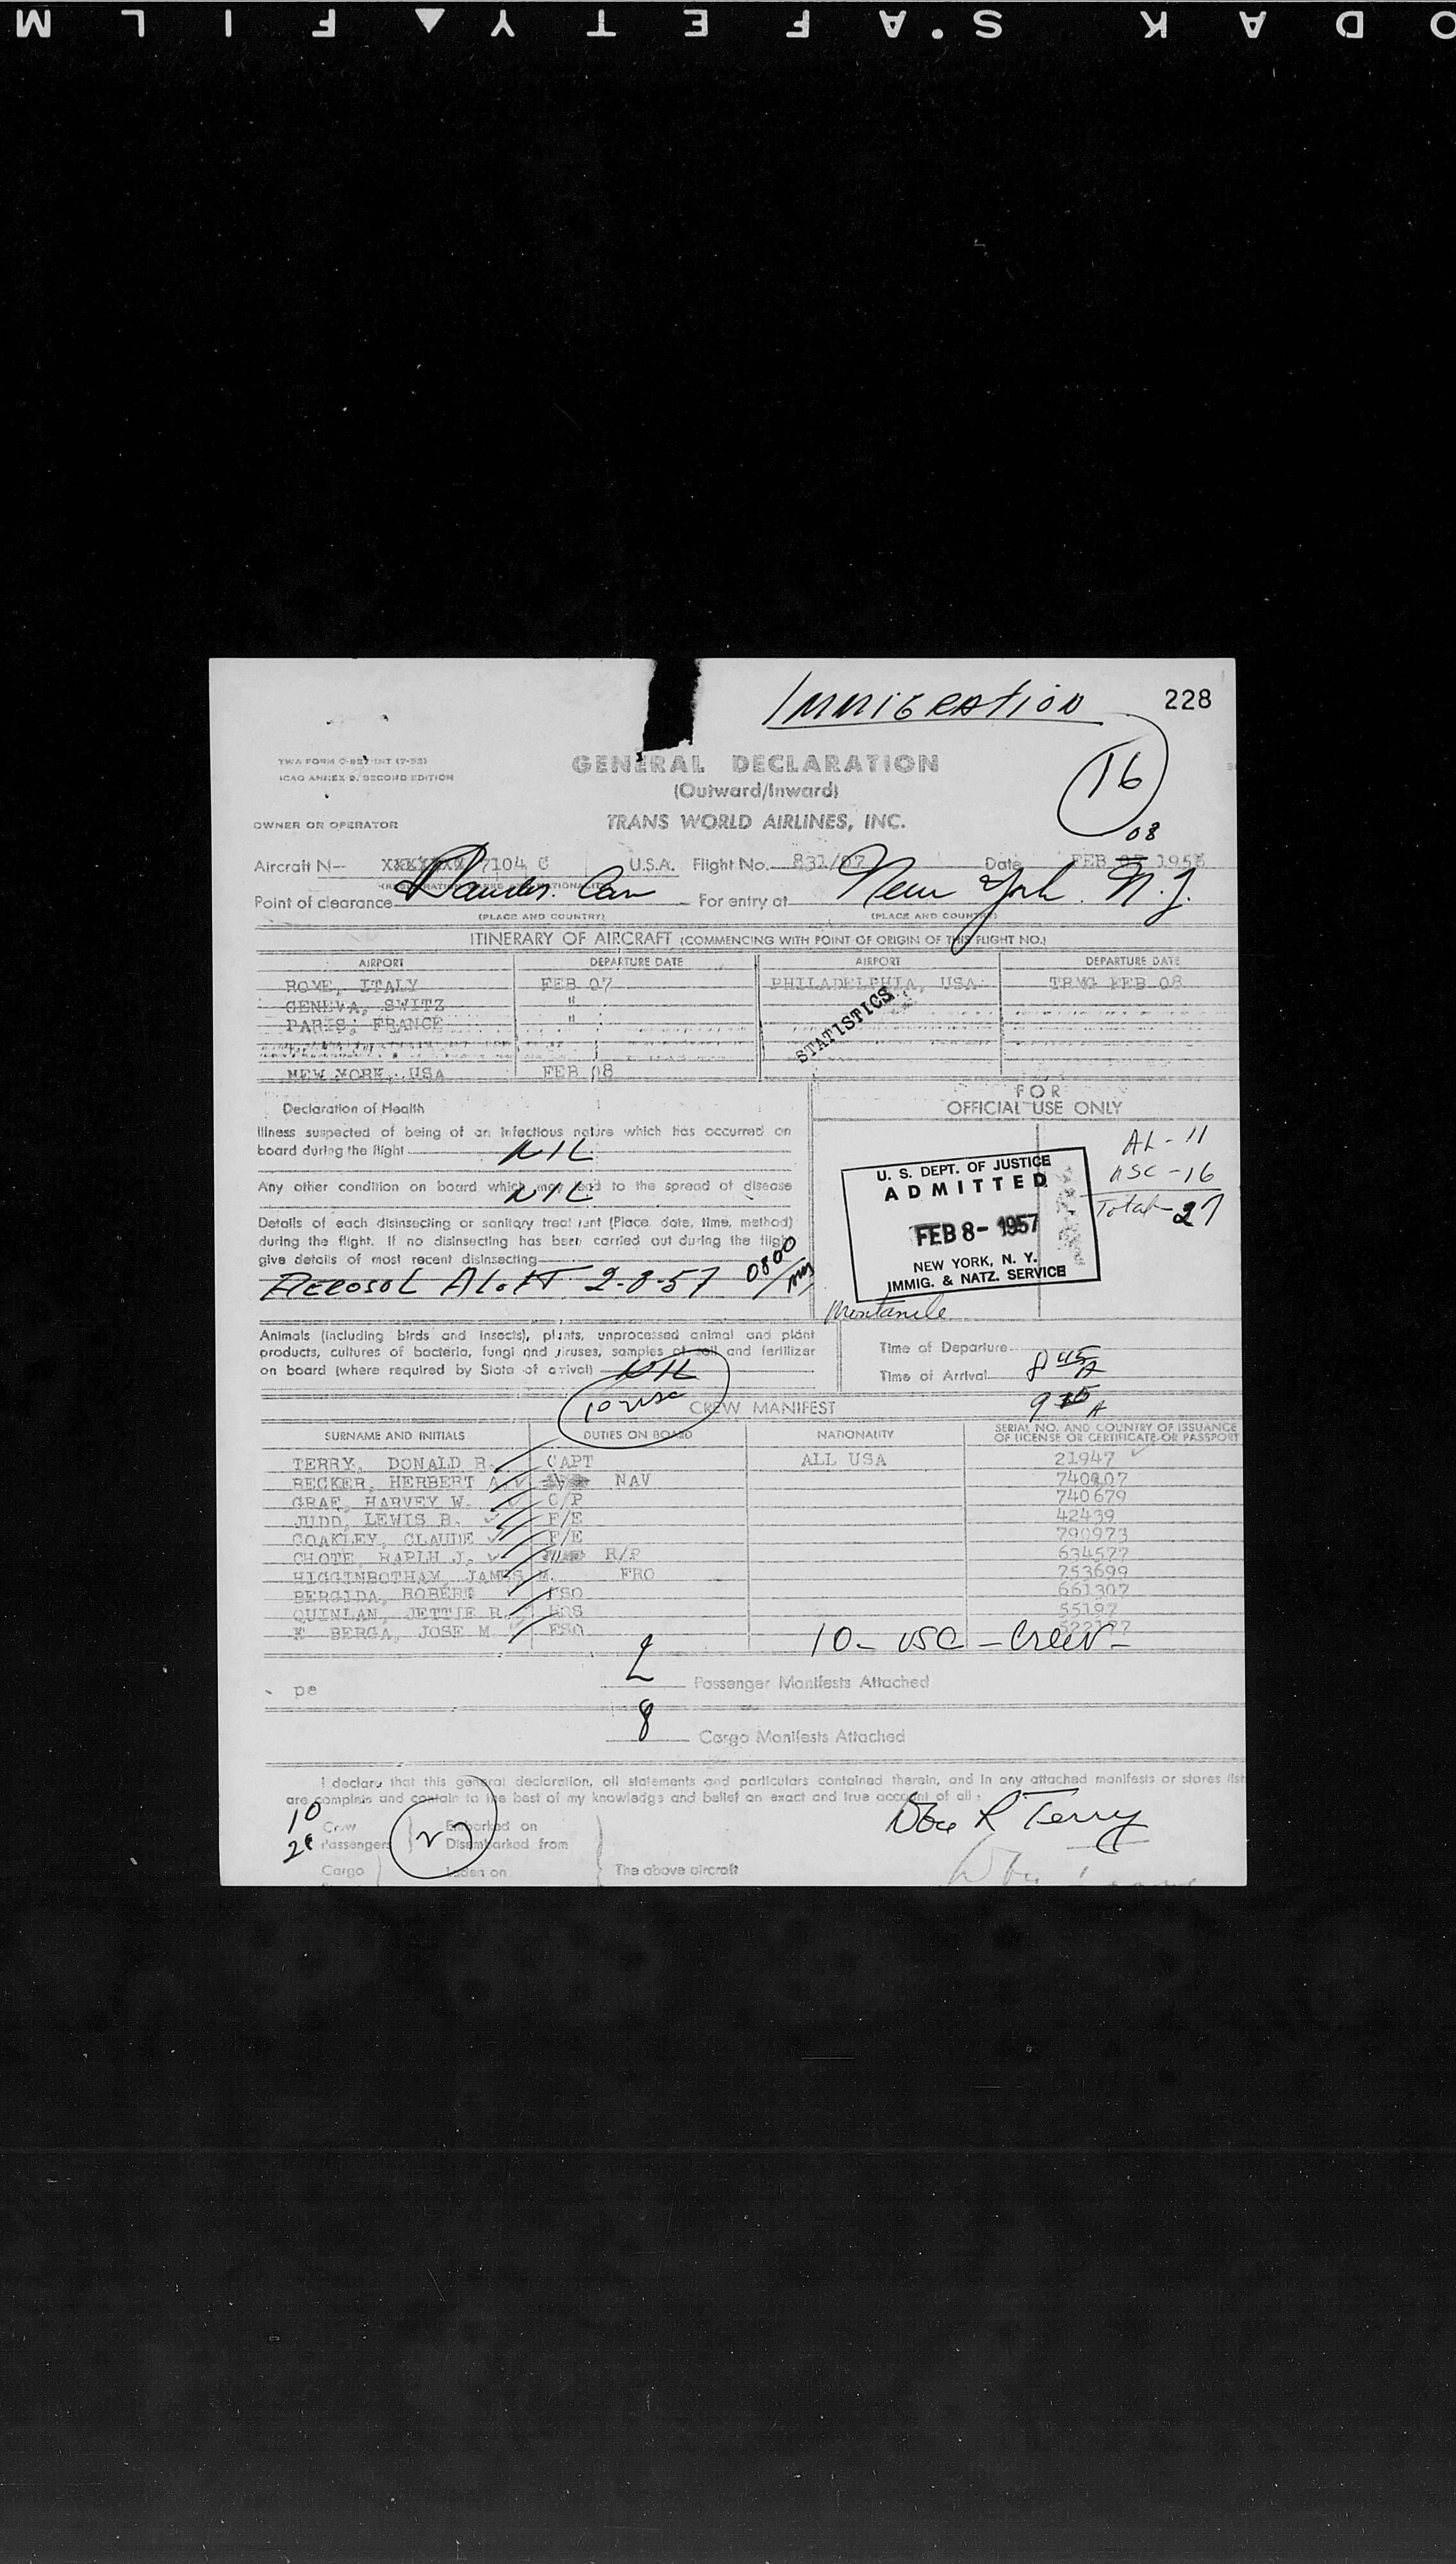 KODAK SAFETY FILM
IMMIGRATION 228
16
TWA FORM
ICAO ANNEX 9, SECOND EDITION
GENERAL DECLARATION
(Outward/Inward)
OWNER OR OPERATOR
TRANS WORLD AIRLINES, INC.
08
Aircraft N— 7104 C U.S.A. Flight No. 831/07 Date FEB 07 195
Point of clearance For entry at New York N.Y.
(PLACE AND COUNTRY) (PLACE AND COUNTRY)
ITINERARY OF AIRCRAFT (COMMENCING WITH POINT OF ORIGIN OF THIS FLIGHT NO.)
AIRPORT DEPARTURE DATE AIRPORT DEPARTURE DATE
ROME, ITALY FEB 07 PHILADELPHIA, USA TRMG FEB 08
GENEVA, SWITZ "
PARIS, FRANCE "
STATISTICS
NEW YORK, USA FEB 08
FOR
OFFICIAL USE ONLY
Declaration of Health
Illness suspected of being of an infectious nature which has occurred on
board during the flight NIL
Any other condition on board which may lead to the spread of disease
NIL
Details of each disinsecting or sanitary treatment (Place, date, time, method)
during the flight. If no disinsecting has been carried out during the flight
give details of most recent disinsecting
AEROSOL ALOFT 2-8-57 0800
AL - 11
USC - 16
Total - 27
U. S. DEPT. OF JUSTICE
ADMITTED
FEB 8- 1957
NEW YORK, N. Y.
IMMIG. & NATZ. SERVICE
Animals (including birds and insects), plants, unprocessed animal and plant
products, cultures of bacteria, fungi and viruses, samples of soil and fertilizer
on board (where required by State of arrival) NIL
Time of Departure
Time of Arrival
10 usc
CREW MANIFEST
SURNAME AND INITIALS DUTIES ON BOARD NATIONALITY SERIAL NO. AND COUNTRY OF ISSUANCE
OF LICENSE OR CERTIFICATE OR PASSPORT
TERRY, DONALD R. CAPT ALL USA 21947
BECKER, HERBERT A. NAV
GRAF, HARVEY W. C/P 740679
JUDD, LEWIS B. F/E 42439
COAKLEY, CLAUDE F/E 790973
CHOTE, RAPLH J. R/P 634577
HIGGINBOTHAM, JAMES M. FRO 753699
BERGIDA, ROBERT FSO 661307
QUINLAN, JETTIE R. HOS 55197
BERGA, JOSE M FSO
10 - USC - Crew -
pe
2 Passenger Manifests Attached
8 Cargo Manifests Attached
I declare that this general declaration, all statements and particulars contained therein, and in any attached manifests or stores list
are complete and contain to the best of my knowledge and belief an exact and true account of all:
10 Crew Embarked on
Passengers 27 Disembarked from
Cargo Laden on The above aircraft
Terry